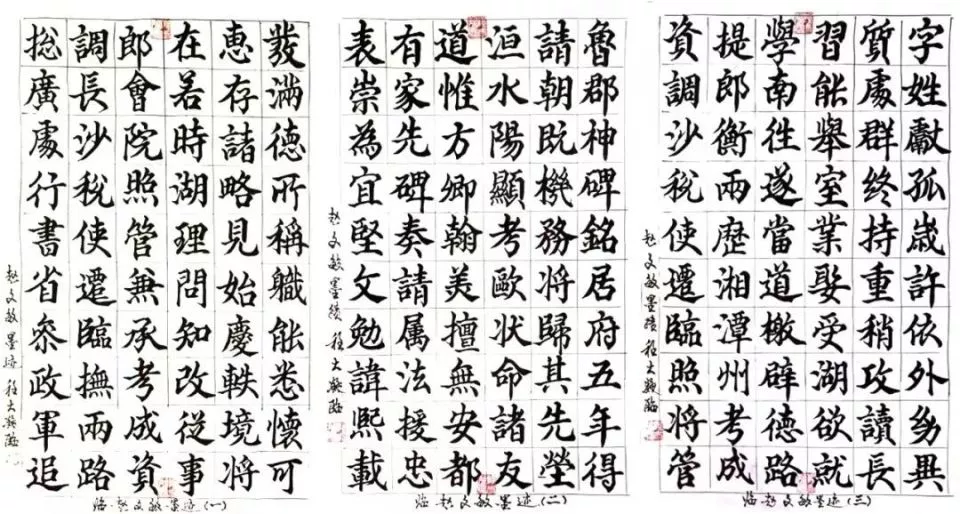 發滿德所稱職能悉懷可
惠存諸略見始慶軼境將
在若時湖理問知改從事
郎會院照管兼承考成資
調長沙稅使遷臨撫兩路
捴廣處行書省叅政軍追
趙文敏墨迹 程大臨
临赵文敏墨迹(一)
魯郡神碑銘居府五年得
請朝既機務將歸其先塋
洹水陽顯考歐狀命諸友
道惟方卿翰美擅無安都
有家先碑奏請属法援忠
表崇為宜堅文勉諱熙載
趙文敏墨績 程大臨
临赵文敏墨迹(二)
字姓獻孤歲許依外幼異
質處群終持重稍攻讀長
習能舉室業娶受湖欲就
學南往遂當道檄辟德路
提郎衡兩歷湘潭州考成
資調沙稅使遷臨照將管
趙文敏墨蹟 程大臨
临赵文敏墨迹(三)